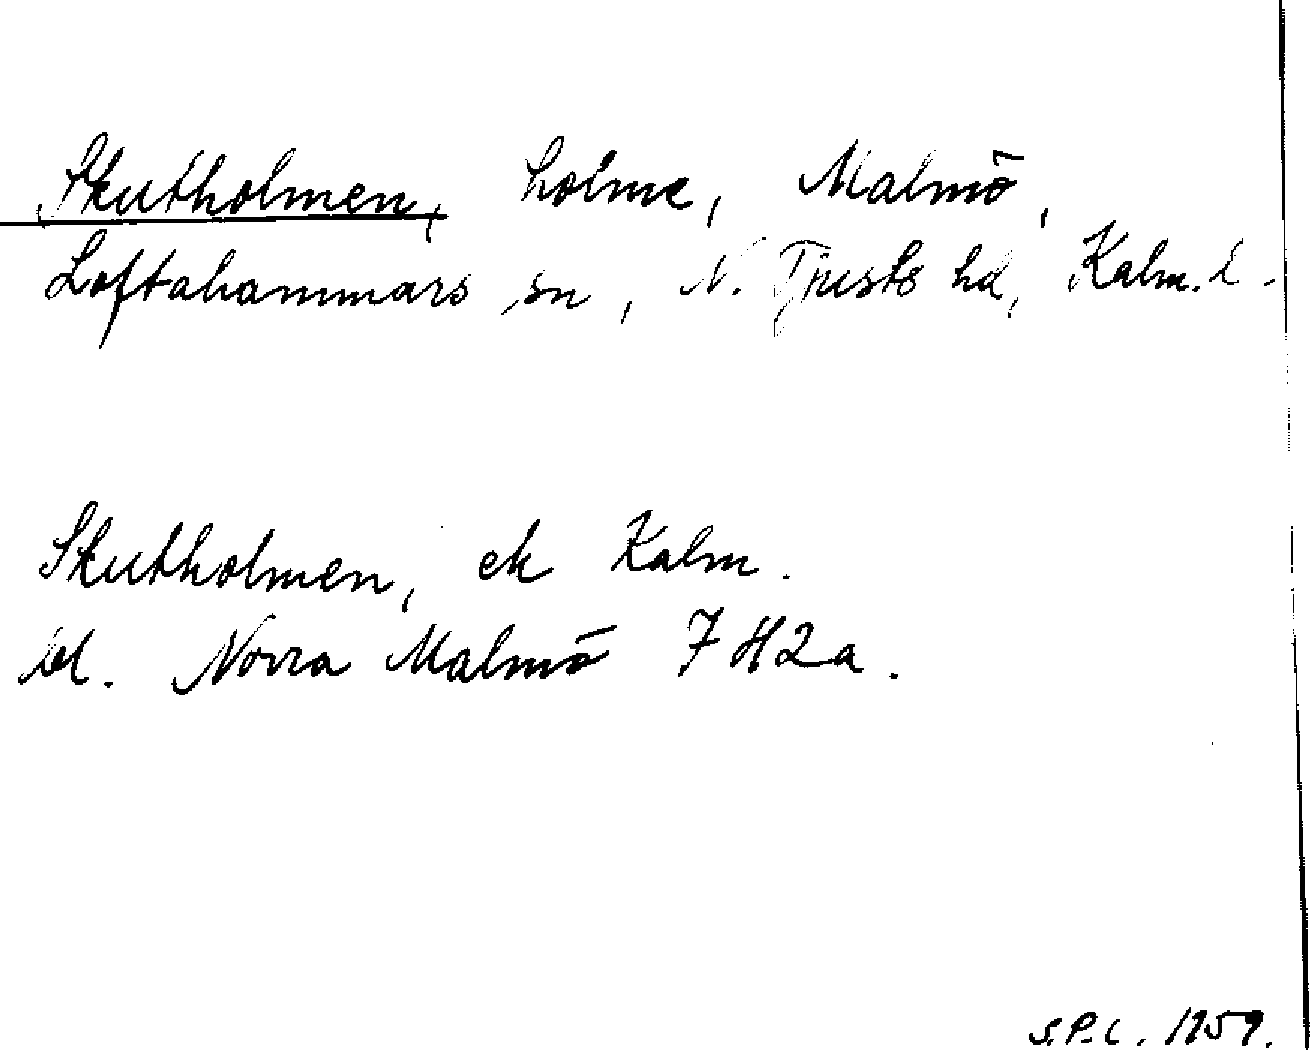 Skutholmen, holme, Malmö,
Loftahammars sn, N. Tjusts hd, Kalm. l.
Skutholmen, ek Kalm.
bl. Norra Malmö 7 H2a.
S.P.C. 1959.